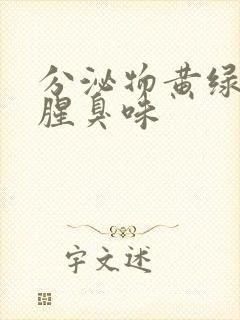 分泌物黄绿
腥臭味
字文述